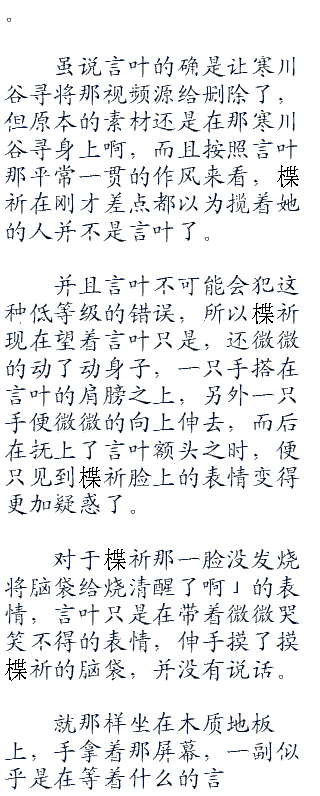 。
虽说言叶的确是让寒川
谷寻将那视频源给删除了，
但原本的素材还是在那寒川
谷寻身上啊，而且按照言叶
那平常一贯的作风来看，楪
祈在刚才差点都以为揽着她
的人并不是言叶了。
并且言叶不可能会犯这
种低等级的错误，所以楪祈
现在望着言叶只是，还微微
的动了动身子，一只手搭在
言叶的肩膀之上，另外一只
手便微微的向上伸去，而后
在抚上了言叶额头之时，便
只见到楪祈脸上的表情变得
更加疑惑了。
对于楪祈那一脸没发烧
将脑袋给烧清醒了啊」的表
情，言叶只是在带着微微哭
笑不得的表情，伸手摸了摸
楪祈的脑袋，并没有说话。
就那样坐在木质地板
上，手拿着那屏幕，一副似
乎是在等着什么的言